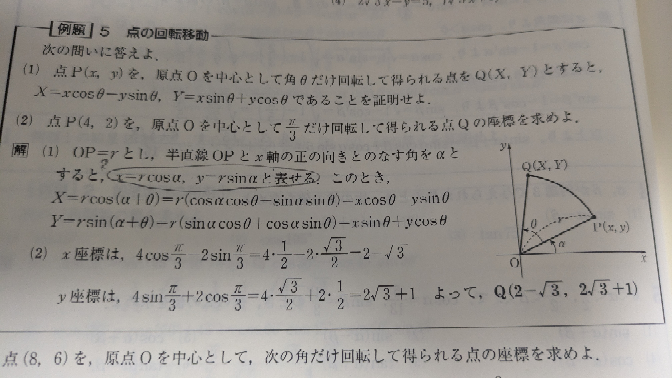 例題 5 点の回転移動
次の問いに答えよ.
(1) 点P(x, y)を, 原点Oを中心として角θだけ回転して得られる点をQ(X, Y)とすると,
X=xcosθ-ysinθ, Y=xsinθ+ycosθであることを証明せよ.
(2) 点P(4, 2)を, 原点Oを中心としてπ/3だけ回転して得られる点Qの座標を求めよ.
解 (1) OP=rとし, 半直線OPとx軸の正の向きとのなす角をαと
?
すると, x=rcosα, y=rsinαと表せる. このとき,
X=rcos(α+θ)=r(cosαcosθ-sinαsinθ)=xcosθ-ysinθ
Y=rsin(α+θ)=r(sinαcosθ+cosαsinθ)=xsinθ+ycosθ
(2) x座標は, 4cosπ/3-2sinπ/3=4・1/2-2・√3/2=2-√3
y座標は, 4sinπ/3+2cosπ/3=4・√3/2+2・1/2=2√3+1 よって, Q(2-√3, 2√3+1)
y
Q(X, Y)
r
θ
P(x, y)
α
O
x
点(8, 6)を, 原点Oを中心として, 次の角だけ回転して得られる点の座標を求めよ.